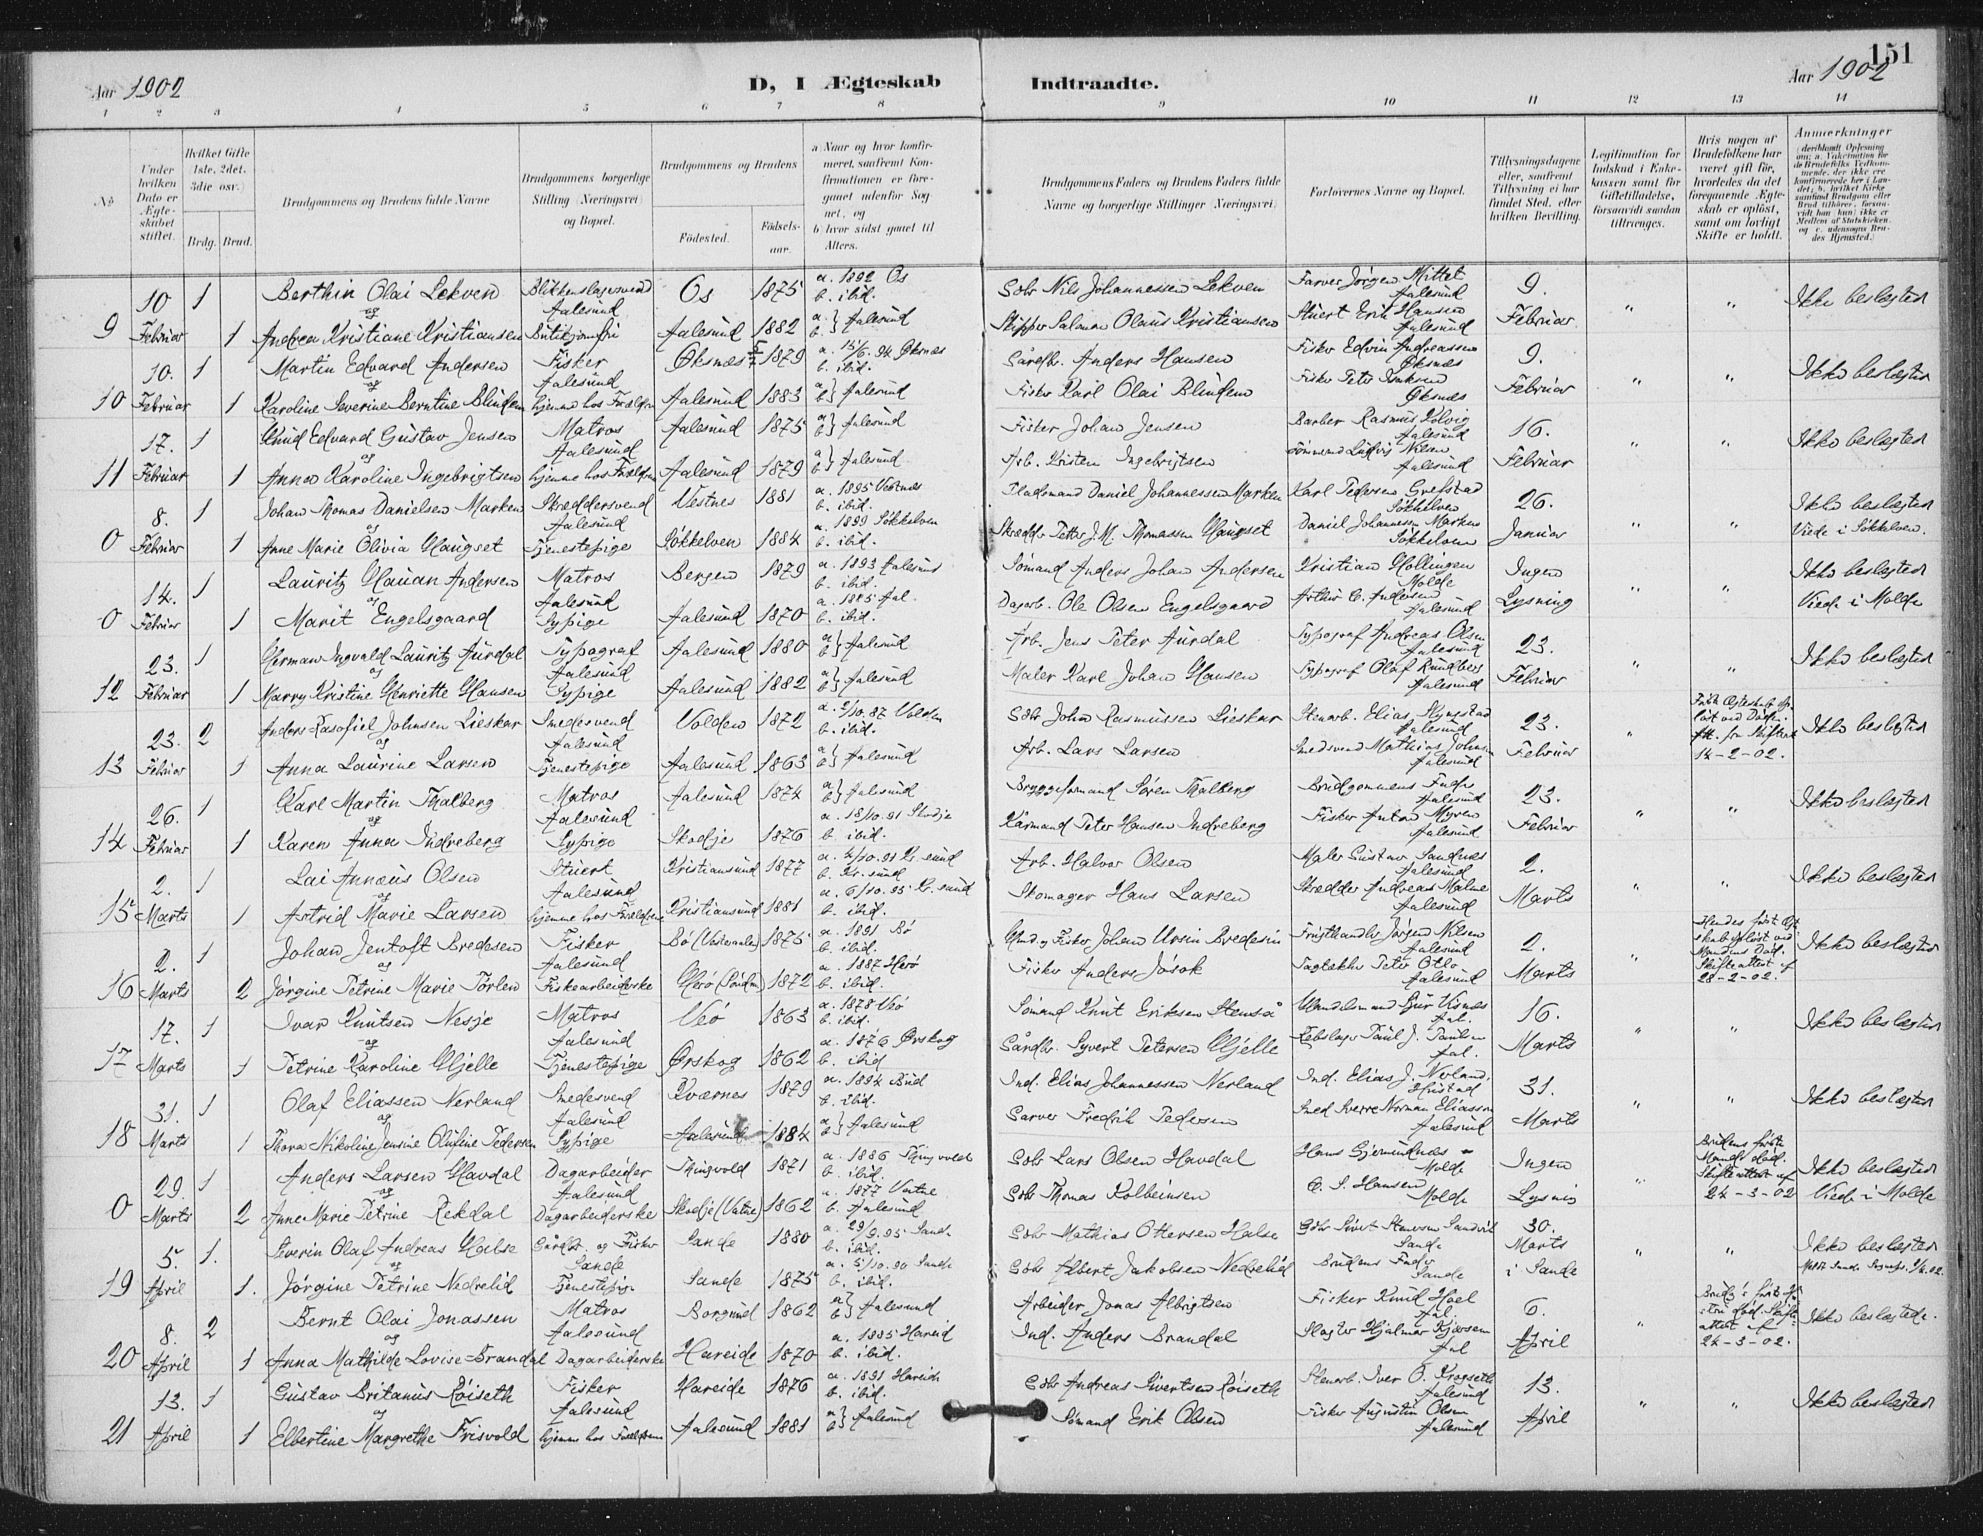 151
Aar 1902
D, I Ægteskab Indtraadte.
Aar 1902
1 2 3 4 5 6 7 8 9 10 11 12 13 14
No
Under hvilken Dato er Ægteskabet stiftet.
Hvilket Gifte 1ste, 2det, 3die osv.)
Brdg. Brud.
Brudgommens og Brudens fulde Navne
Brudgommens borgerlige Stilling (Næringsvei) og Bopæl.
Brudgommens og Brudens
Fødested. Fødselsaar.
a) Naar og hvor konfirmeret, saafremt Konfirmationen er foregaaet udenfor Sognet, og
b) hvor sidst gaaet til Alters.
Brudgommens Faders og Brudens Faders fulde Navne og borgerlige Stillinger (Næringsvei)
Forlovernes Navne og Bopæl.
Tillysningsdagene eller, saafremt Tillysning ei har fundet Sted, efter hvilken Bevilling.
Legitimation for Indskud i Enkekassen samt for Giftetilladelse, forsaavidt saadan tiltrænges.
Hvis nogen af Brudefolkene har været gift før, hvorledes da det foregaaende Ægteskab er opløst, samt om lovligt Skifte er holdt.
Anmerkninger
10 1 Berthin Olai Lekven Blikkenslagersvend Os 1875 a. 1892 Os Gbr Nils Johannessen Lekven Farver Jørgen Mittet 9. " " Ikke beslægted
og Aalesund b. ibid. Aalesund
9 Februar 1 Andrea Kristiane Kristiansen Butikjomfru Aalesund 1882 a b Aalesund Skipper Salamon Olaus Kristiansen Stuert Erik Hansen Aalesund Februar
10. 1 Martin Edvard Andersen Fisker Øksnes 1879 a. 15/6. 94 Øksnes Gårdbr. Anders Hansen Fisker Edvin Andreassen Øksnes 9. " " Ikke beslægted
og Aalesund b. ibid.
10 Februar 1 Karoline Severine Berntine Blindem hjemme hos Forældrene Aalesund 1883 a b Aalesund Fisker Karl Olai Blindem Fisker Peter Øksnes Februar
17. 1 Knud Edvard Gustav Jensen Matros Aalesund 1875 a b Aalesund Fisker Johan Jensen Barber Rasmus Aalesund 16. " " Ikke beslægted
og Aalesund
11 Februar 1 Anna Karoline Ingebrigtsen hjemme hos Forældrene Aalesund 1879 a b Aalesund Arb. Kristen Ingebrigtsen Tømmermd Ludvig Nilsen Aalesund Februar
8. 1 Johan Thomas Danielsen Marken Skræddersvend Vestnes 1881 a. 1895 Vestnes Pladsmand Daniel Johannessen Marken Karl Pedersen Grefstad Søkkelven 26. " " Ikke beslægted
og Aalesund b. ibid.
0 Februar 1 Anne Marie Olivia Haugset Tjenestepige Søkkelven 1884 a. 1899 Søkkelven b. ibid. Skrædder Petter J. M. Thomassen Haugset Daniel Johannessen Marken Søkkelven Januar Viede i Søkkelven.
14. 1 Lauritz Hauan Andersen Matros Bergen 1879 a. 1893 Aalesund Sømand Anders Johan Andersen Kristian Hollingen Molde Ingen " " Ikke beslægted
og Aalesund b. ibid.
0 Februar 1 Marit Engelsgaard Sypige Aalesund 1870 a. 1885 Aal. b. ibid. Dagarb. Ole Olsen Engelsgaard Arthur C. Andersen Aalesund Lysning Viede i Molde
23. 1 Herman Ingvald Lauritz Aurdal Typograf Aalesund 1880 a b Aalesund Arb. Jens Peter Aurdal Typograf Andreas Olsen Aalesund 23. " " Ikke beslægted
og Aalesund
12 Februar 1 Marry Kristine Henriette Hansen Sypige Aalesund 1882 a b Aalesund Maler Karl Johan Hansen Typograf Olaf Rundberg Aalesund Februar
23. 2 Anders Rasafiel Johnsen Lieskar Smedesvend Volden 1872 a. 2/10. 87 Volden Gbr John Rasmussen Lieskar Stenarb. Elias Aalesund 23. " Ikke beslægted
og Aalesund b. ibid.
13 Februar 1 Anna Laurine Larsen Tjenestepige Aalesund 1863 a b Aalesund Arb. Lars Larsen Smedsvend Mathias Johnsen Aalesund Februar 14-2-02.
26. 1 Karl Martin Thalberg Matros Aalesund 1874 a b Aalesund Bryggeformand Søren Thalberg Brudgommens Fader Aalesund 23. " " Ikke beslægted
og Aalesund
14 Februar 1 Karen Anna Indreberg Sypige Skodje 1876 a. 18/10. 91 Skodje b. ibid. Kårmand Peter Hansen Indreberg Fisker Anton Myren Aalesund Februar
2. 1 Lai Annæus Olsen Stuert Kristiansund 1877 a. 4/10. 91 Kr. sund b. Kr. sund Arb. Halvor Olsen Maler Gustav Sandnes Aalesund 2. " " Ikke beslægted
og Aalesund
15 Marts 1 Astrid Marie Larsen hjemme hos Forældrene Kristiansund 1881 a. 6/10. 95 Kr. sund b. ibid. Skomager Hans Larsen Skrædder Andreas Malme Aalesund Marts
2. 1 Johan Jentoft Bredesen Fisker Bø (Vesteraalen) 1875 a. 1891 Bø b. ibid. Gmd. og Fisker Johan Ursin Bredesen Frugthandler Jørgen Nilsen Aalesund 2. " Hendes første Ægteskab opløst ved Mandens Død. Skifteattest af 28-2-02. Ikke beslægted
og Aalesund
16 Marts 2 Jørgine Petrine Marie Tørlen Fiskearbeiderske Herø (Søndm) 1872 a. 1887 Herø b. ibid. Fisker Anders Jøsok Tagtækker Peter Otto Aalesund Marts
17. 1 Ivar Knutsen Nesje Matros Veø 1863 a. 1878 Veø b. ibid. Sømand Knut Eriksen Handelsmand Aal. 16. " " Ikke beslægted
og Aalesund
17 Marts 1 Petrine Karoline Gjelle Tjenestepige Ørskog 1862 a. 1876 Ørskog b. ibid Gårdbr. Syvert Petersen Gjelle Rebslager Paul J. Aal. Marts
31. 1 Olaf Eliassen Nerland Smedesvend Kværnes 1879 a. 1894 Bud b. ibid. Ind. Elias Johannessen Nerland Ind. Elias J. Nerland. Hustad 31. " " Ikke beslægted
og Aalesund
18 Marts 1 Thora Nikoline Jensine Olufine Pedersen Sypige Aalesund 1884 a b Aalesund Garver Fredrik Pedersen Smed Sverre Norman Eliassen Aalesund Marts
29. 1 Anders Larsen Havdal Dagarbeider Thingvold 1871 a. 1886 Thingvold b. ibid. Gbr Lars Olsen Havdal Hans Gjermundnæs Molde Ingen " Brudens første Mand død. Skifteattest af 24-3-02 Ikke beslægted
og Aalesund
0 Marts 2 Anne Marie Petrine Rekdal Dagarbeiderske Skodje (Vatne) 1862 a. 1877 Vatne b. Aalesund Gbr Thomas Kolbeinsen C. S. Hansen Molde Lysnin Viede i Molde
5. 1. Severin Olaf Andreas Halse Gårdbr. og Fisker Sande 1880 a. 29/9. 95 Sande b. ibid. Gbr Mathias Ottersen Halse Gbr Sivert Stenersen Sandvik Sande 30. Marts " " Ikke beslægted
og Sande
19 April 1. Jørgine Petrine Nedrelid Tjenestepige Sande 1875 a. 5/10. 90 Sande b. ibid. Gbr Albert Jakobsen Nedrelid Brudens Fader Sande i Sande
8. 2 Bernt Olai Jonassen Matros Borgund 1862 a b Aalesund Arbeider Jonas Albrigtsen Fisker Knud Hoel Aal. 6. " 24-3-02. Ikke beslægtede.
og Aalesund
20 April 1 Anna Mathilde Lovise Brandal Dagarbeiderske Hareide 1870 a. 1885 Hareid b. ibid. Ind. Anders Brandal Slagter Hjalmar Aal April
13. 1 Gustav Britanus Røiseth Fisker Hareide 1876 a. 1891 Hareide b. ibid. Gbr Andreas Sivertsen Røiseth Stenarb. Iver O. Krogseth Aalesund 13. " " Ikke beslægted
og Aalesund
21 April 1 Elbertine Margrethe Frisvold hjemme hos Forældrene Aalesund 1881 a b Aalesund Sømand Erik Olsen Fisker Augustin Olsen Aalesund April